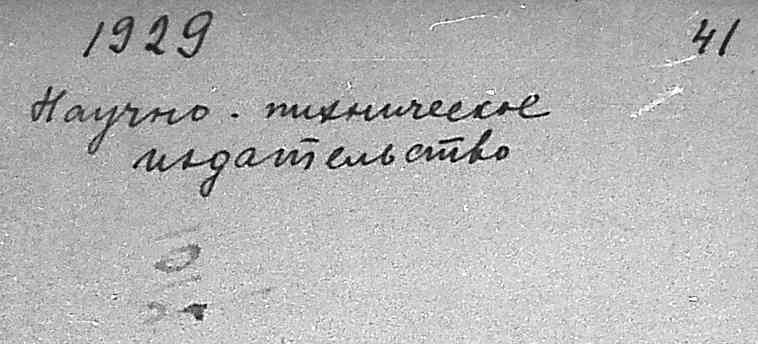 1929 41
Научно-техническое
издательство